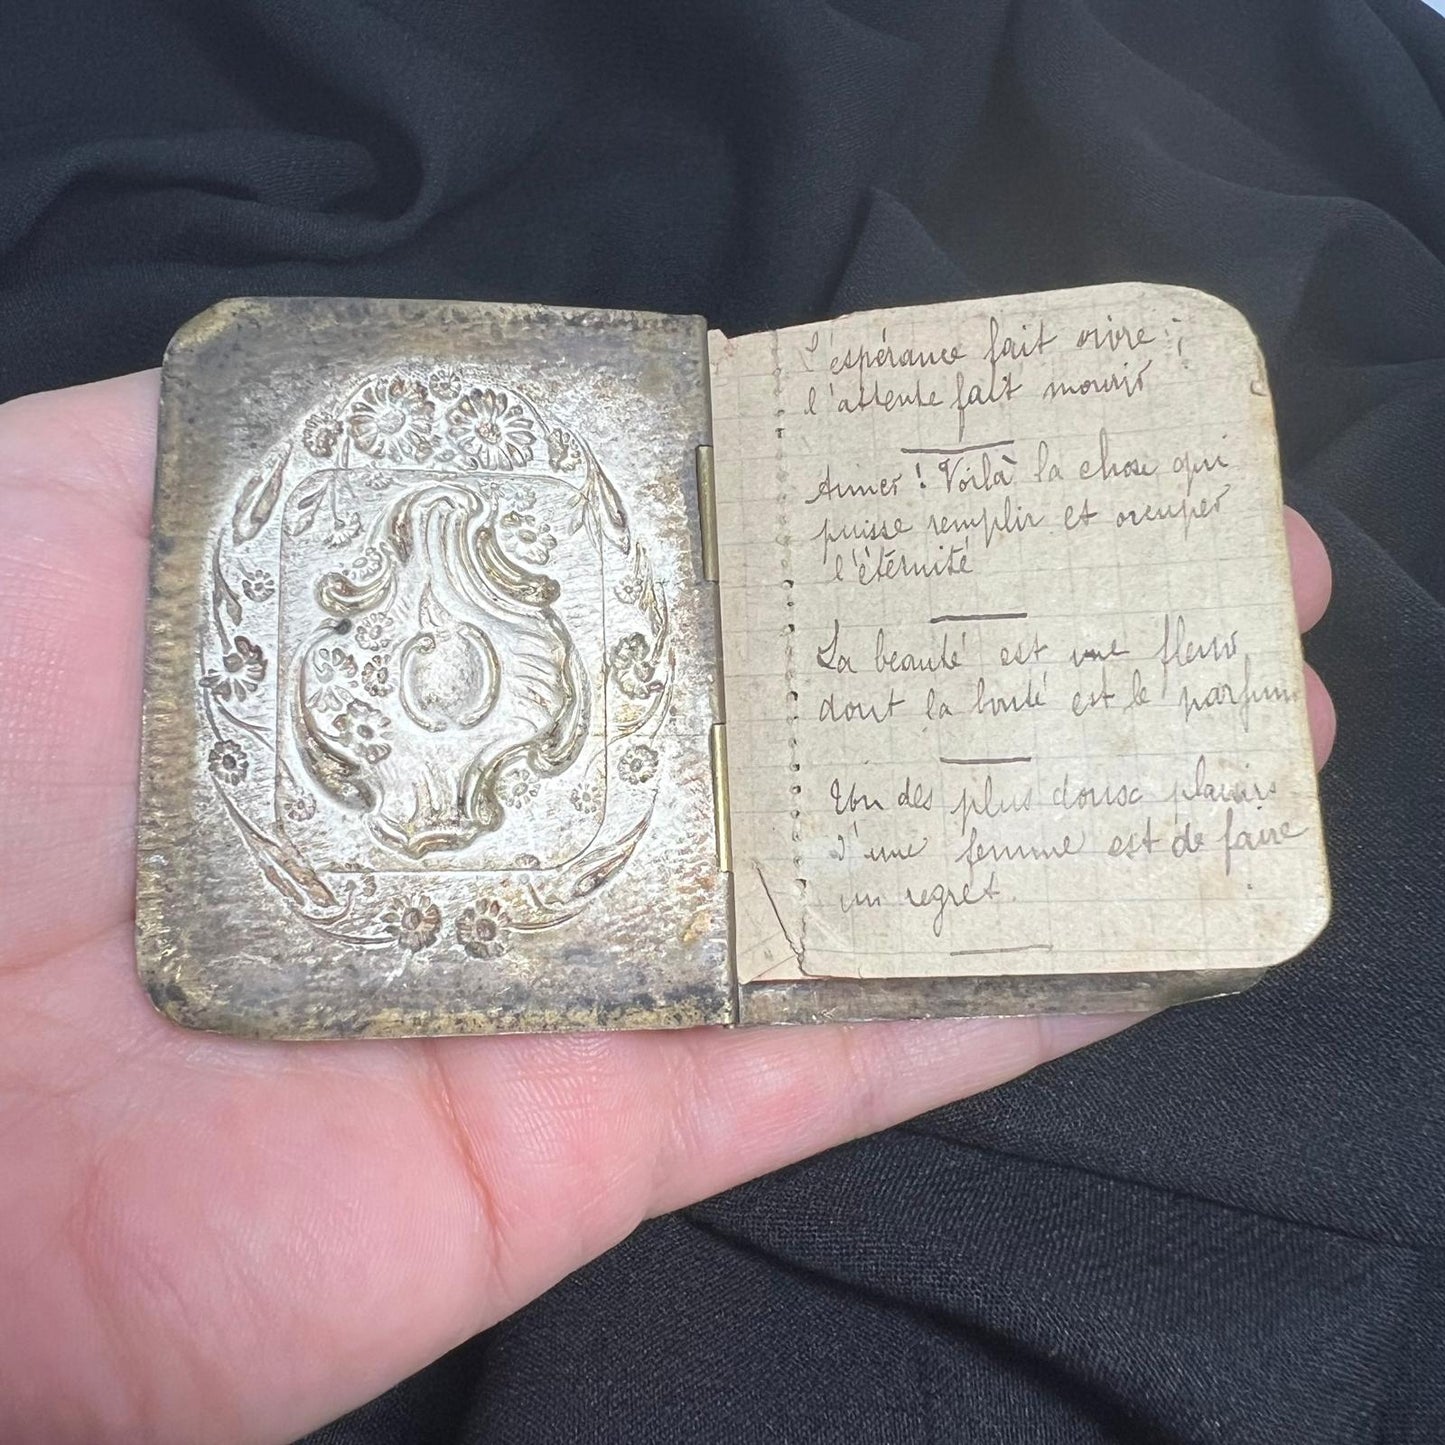 L'espérance fait vivre ;
l'attente fait mourir
Aimer ! Voilà la chose qui
puisse remplir et occuper
l'éternité
La beauté est une fleur
dont la bonté est le parfum
Un des plus doux plaisirs
d'une femme est de faire
un regret.